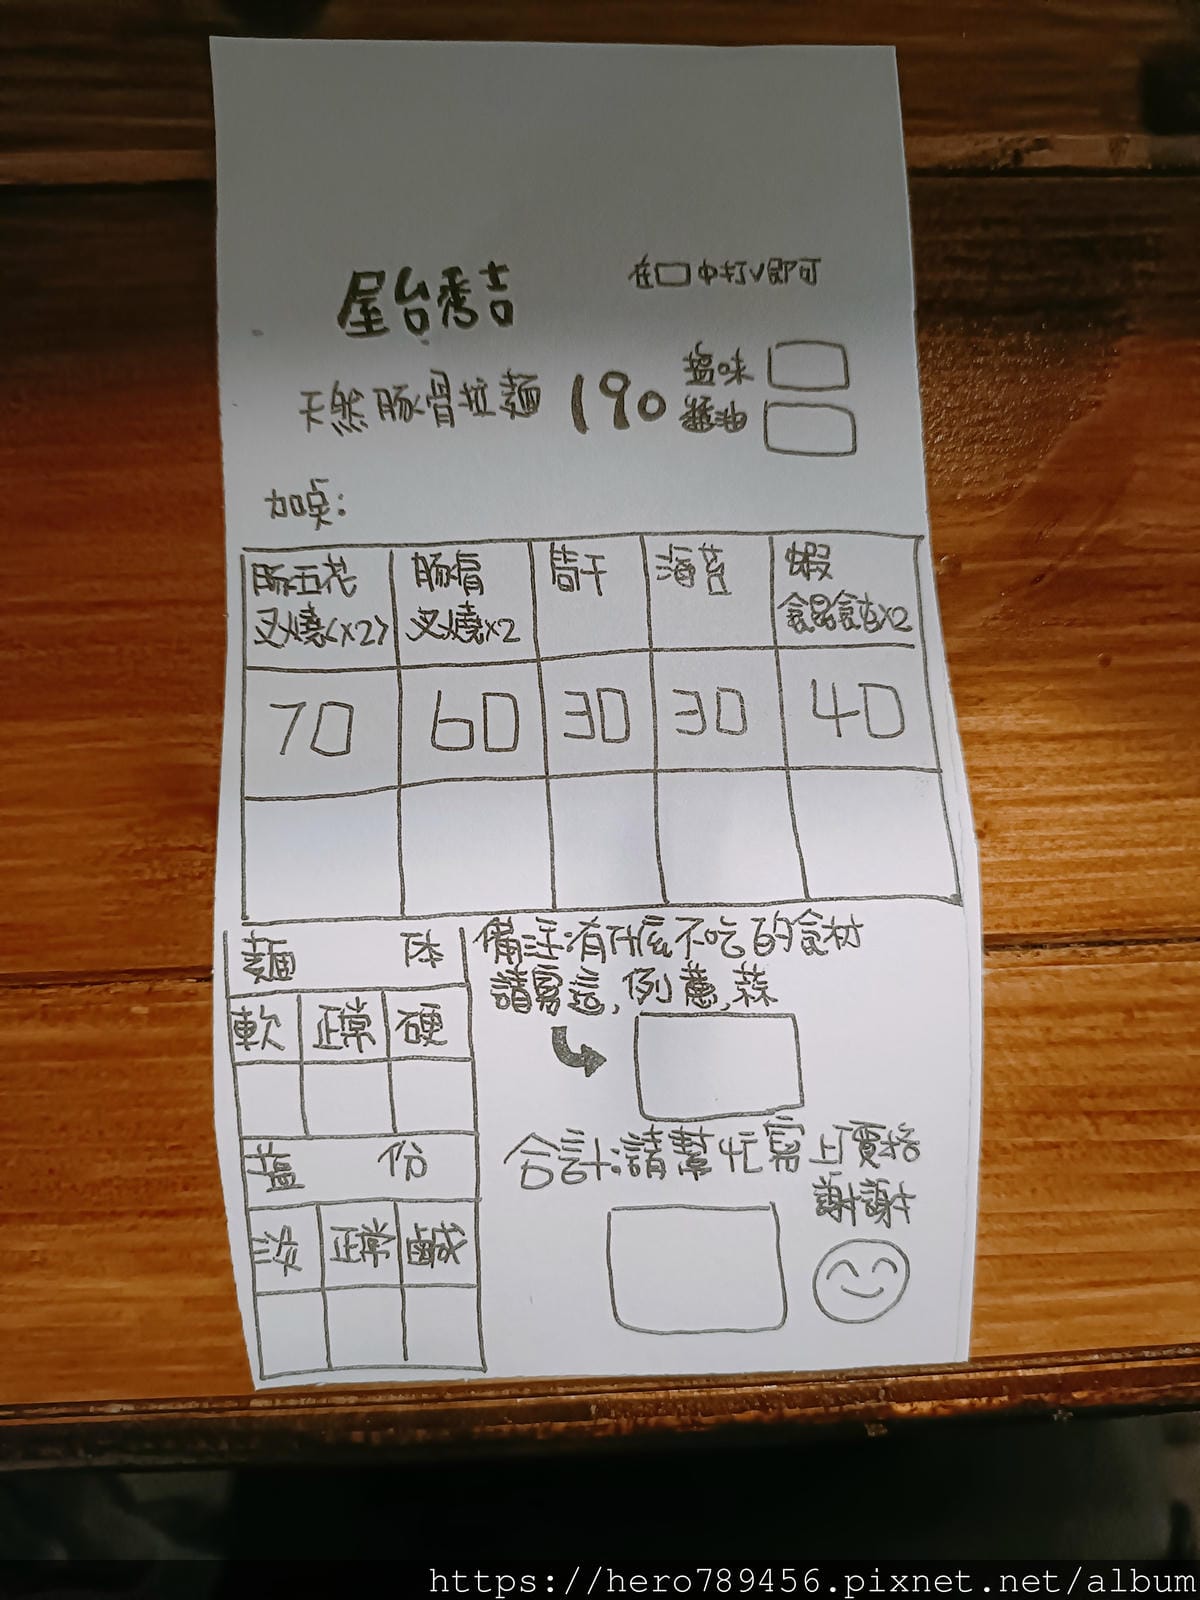 屋台秀吉
在□中打V即可
天然豚骨拉麵 190
塩味
醬油
加点:
豚五花
叉燒(x2)
豚肩
叉燒x2
筍干
海苔
蝦
餛飩x2
70
60
30
30
40
麵 体
軟 正常 硬
塩 份
淡 正常 鹹
備注:有什底不吃的食材
請寫這,例蔥,蒜
合計:請幫忙寫上價格
謝謝
https://hero789456.pixnet.net/album